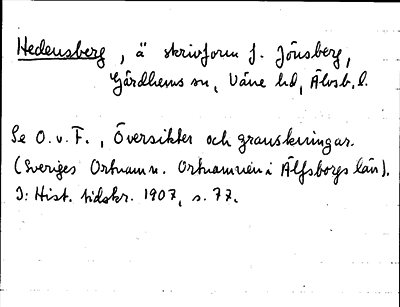 Hedensberg, ä skrivform f. Jönsberg,
Gärdhems sn, Väne hd, Älvsb. l.
Se O. v. F., Översikter och granskningar.
(Sveriges Ortnamn. Ortnamnen i Älfsborgs län).
I: Hist. tidskr. 1907, s. 77.